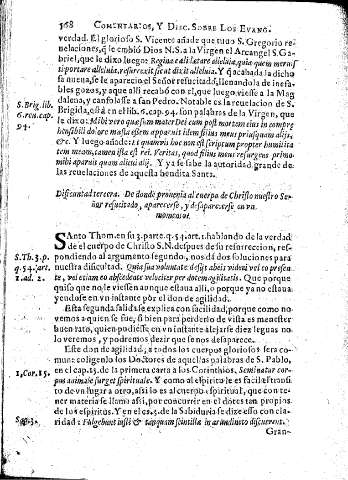 568 COMENTARIOS, Y DISC. SOBRE LOS EVANG.
verdad. El glorioso S. Vicente añade que tuuo S. Gregorio re-
nelaciones, q̃ le embió Dios N.S. a la Virgen el Arcangel S. Ga-
briel, que le dixo luego: Regina cæli lætare alleluia, quia quem merui-
sti portare alleluia, resurrexit sicut dixit alleluia. Y q̃ acabada la dicho
sa nueua, se le aparecio el Señor resucitado, llenandola de inefa-
bles gozos, y aque alli recabó con el, que luego viesse a la Mag
dalena, y consolasse a san Pedro. Notable es la reuelacion de S.
S. Brig. lib.
6. reu. cap.
94.
Brigida, està en el lib. 6. cap. 94. son palabras de la Virgen, que
le dixo: Mihi vero quæ sum mater Dei cum post mortem eius in compre
hensibili dolore mæsta essem apparuit idem filius meus priusquam alijs,
&c. Y luego añade: Et quamuis hoc non est scriptum propter humilita
tem meam, tamen ista est rei. Veritas, quod filius meus resurgens primo-
mihi aparuit quam alicui alij. Y ya se sabe la autoridad grande de
las reuelaciones de aquesta bendita Santa.
Discantad tercera. De donde prouenia al cuerpo de Christo nuestro Se-
ñor resucitado, aparecerse, y desaparecerse en vn
momento.
SAnto Thom. en su 3. parte. q. 54. art. 1. hablando de la verdad
de el cuerpo de Christo S.N. despues de su resurreccion, res-
S. Th. 3. p.
q. 54. art.
1. ad. 2.
pondiendo al argumento segundo, nos dà dos soluciones para
nuestra dificultad. Quia sua voluntate desijt abeis videri vel co præsen
te, vel etiam eo abscedente velociter per dotem agilitatis. Que porque
quiso que no le viessen aunque estaua alli, o porque ya no estaua
yendose en vn instante pòr el don de agilidad.
Esta segunda salida se explica con facilidad, porque como no-
vemos a quien se fue, si bien para perderlo de vista es menester
buen rato, quien pudiesse en vn instante alejarse diez leguas no
lo veremos, y podremos dezir que se nos desaparece.
Este don de agilidad, a todos los cuerpos gloriosos serà co-
mun: coligenlo los Doctores de aquellas palabras de S. Pablo,
1. Cor. 15.
en el cap. 15. de la primera carta a los Corinthios. Seminatur cor-
pus animale surget spirituale. Y como al espiritu le es facil el transi-
to de vn lugar a otro, assi lo es al cuerpo espiritual, que con te-
ner materia se llama assi, por concurrir en el dotes tan propias
de los espiritus. Y en el c. 3. de la Sabiduria se dize esso con cla-
Sap. 3.
ridad: Fulgebunt iusti & tanquam scintillæ in arundineto discurrent.
Gran-